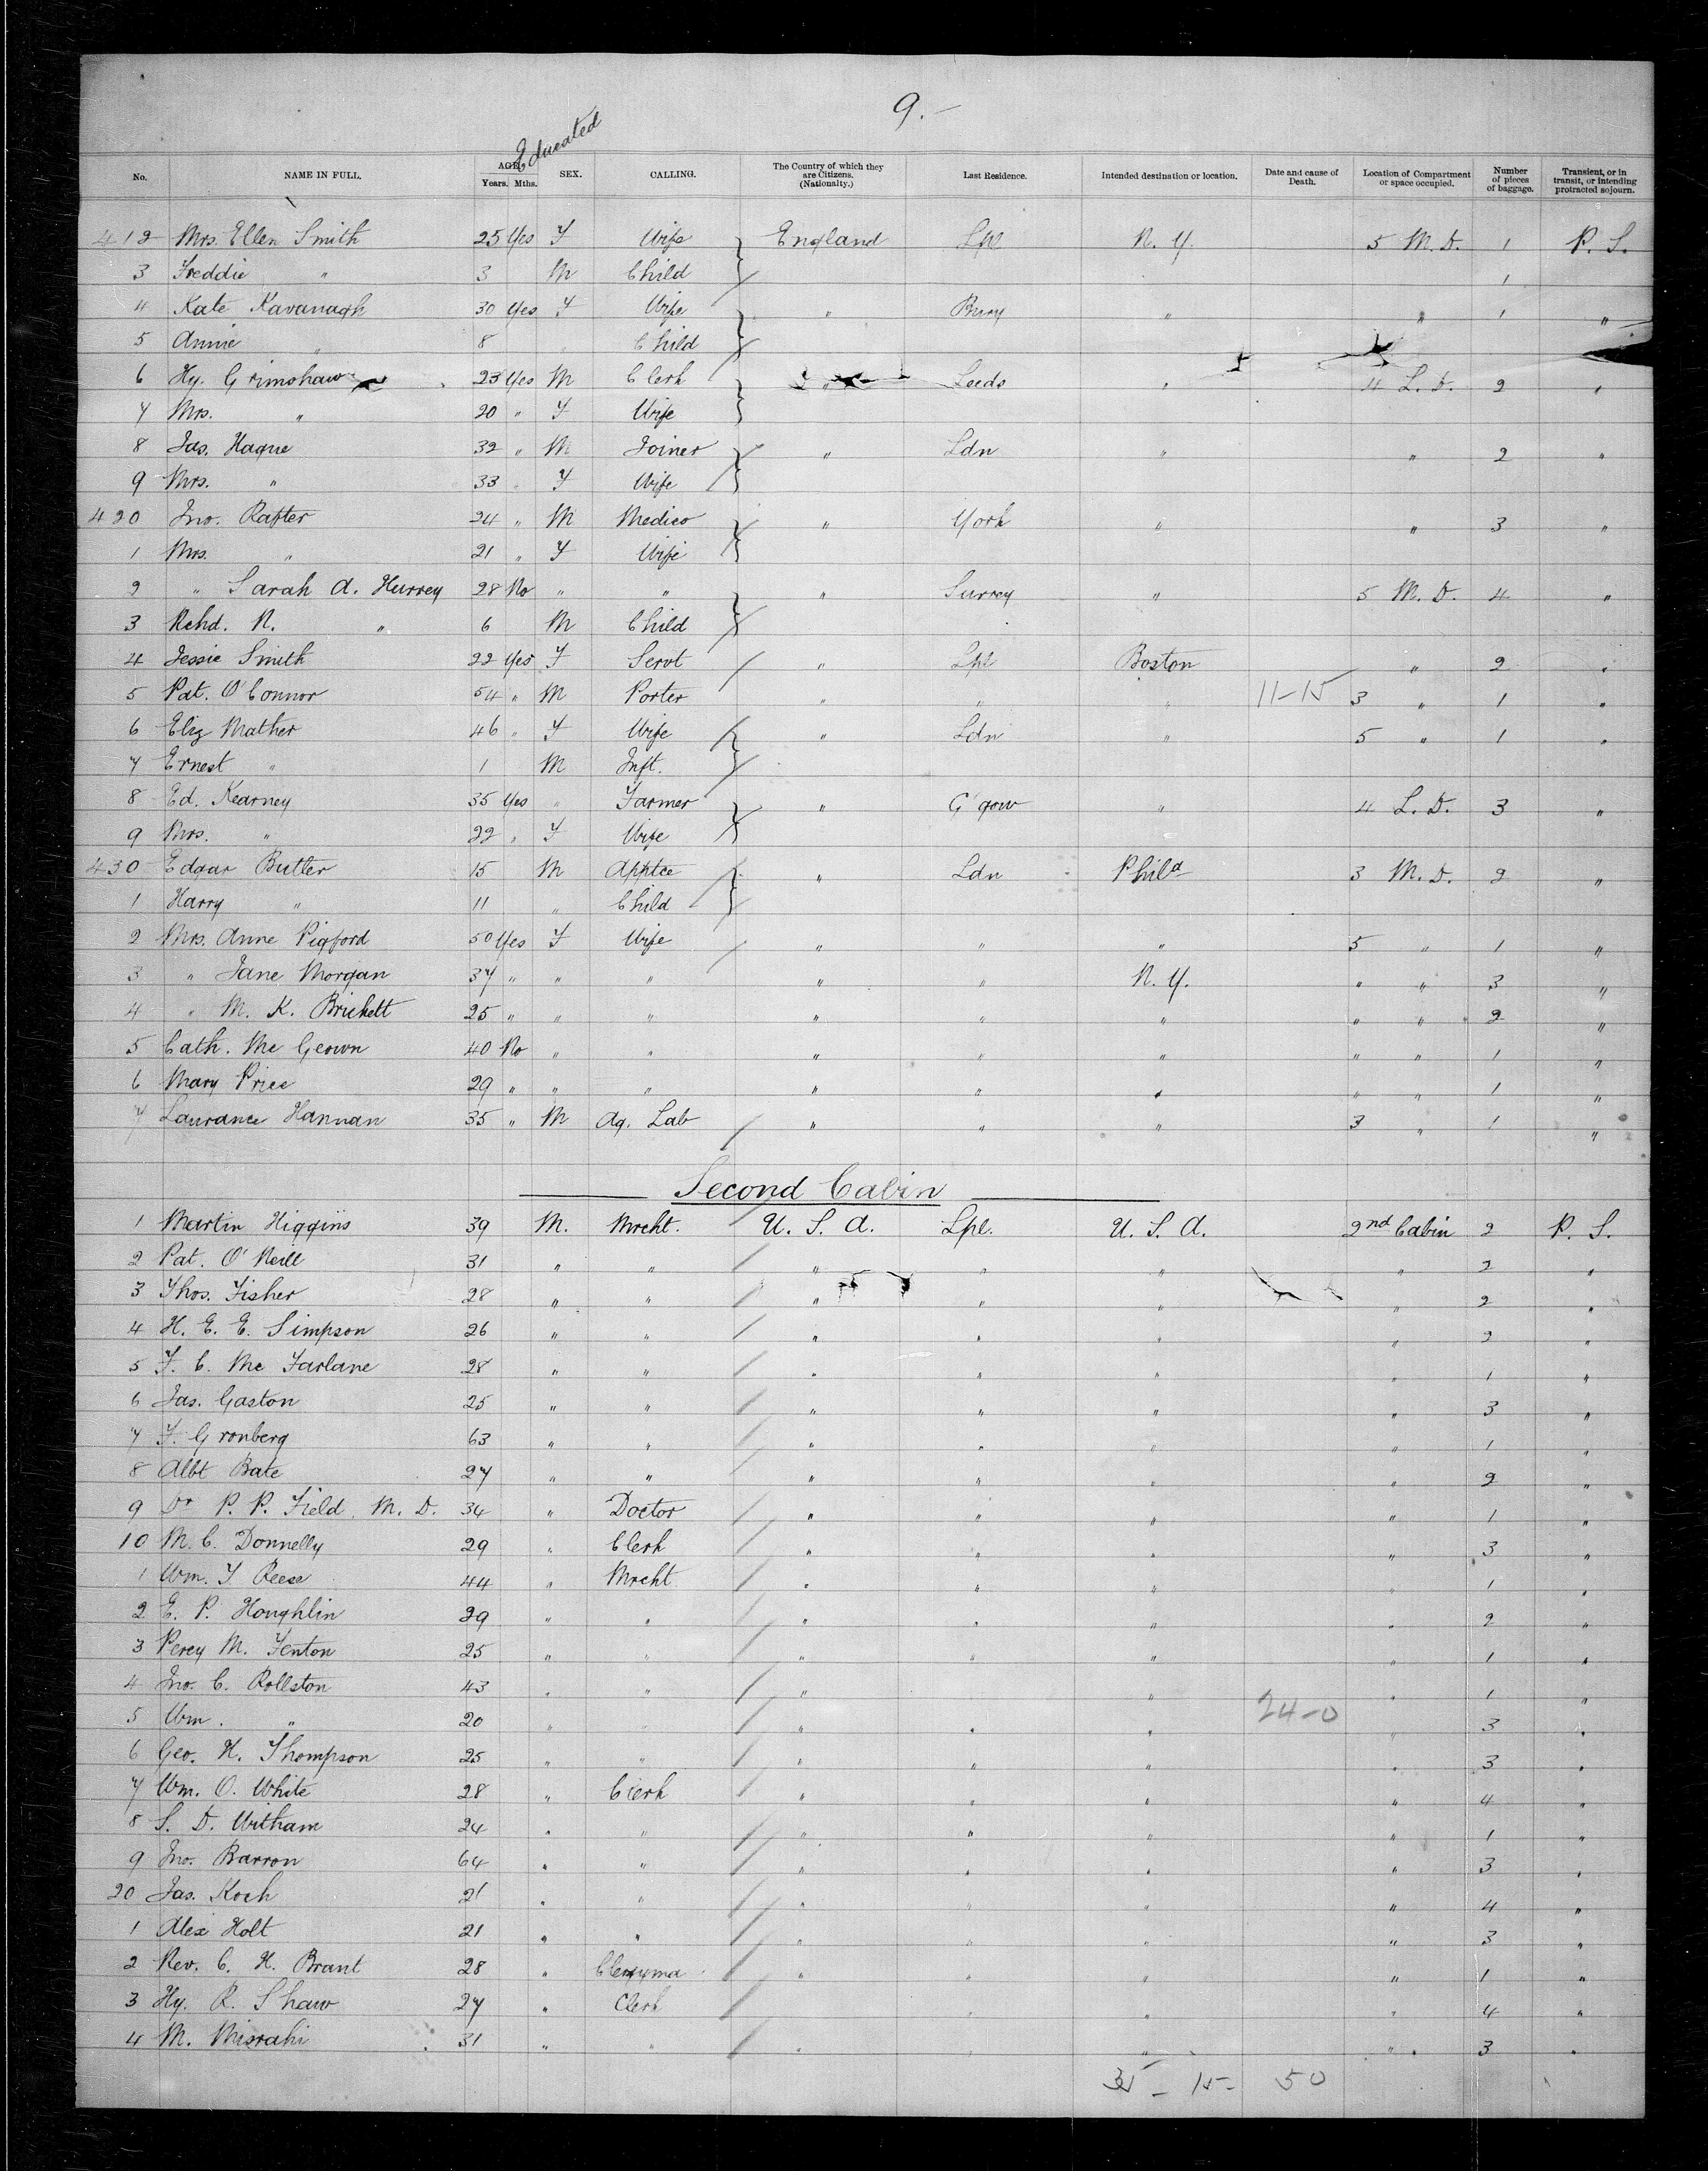 9.-
Educated
No. NAME IN FULL. AGE. Years. Mths. SEX. CALLING. The Country of which they are Citizens. (Nationality.) Last Residence. Intended destination or location. Date and cause of Death. Location of Compartment or space occupied. Number of pieces of baggage. Transient, or in transit, or intending protracted sojourn.
412 Mrs. Ellen Smith 25 Yes F Wife England Lpl N. Y. 5 M. D. 1 P. S.
3 Freddie " 3 M Child 1
4 Kate Kavanagh 30 Yes F Wife " Bury " " 1 "
5 Annie " 8 Child
6 Hy. Grimshaw 23 Yes M Clerk " Leeds " 4 L. D. 2 "
7 Mrs. " 20 " F Wife
8 Jas. Hague 32 " M Joiner " Ldn " " 2 "
9 Mrs. " 33 " F Wife
420 Jno. Rafter 24 " M Medico " York " " 3 "
1 Mrs. " 21 " F Wife
2 " Sarah A. Hurrey 28 No " " " Surrey " 5 M. D. 4 "
3 Rchd. N. " 6 M Child
4 Jessie Smith 22 Yes F Servt " Lpl Boston " 2 "
5 Pat. O'Connor 54 " M Porter " " " 11-15 3 " 1 "
6 Eliz Mather 46 " F Wife " Ldn " 5 " 1 "
7 Ernest " 1 M Inft.
8 Ed. Kearney 35 Yes " Farmer " G'gow " 4 L. D. 3 "
9 Mrs. " 22 " F Wife
430 Edgar Butler 15 M Apptce " Ldn Phila 3 M. D. 2 "
1 Harry " 11 " Child
2 Mrs. Anne Pigford 50 Yes F Wife " " " 5 " 1 "
3 " Jane Morgan 37 " " " " " N. Y. " " 3 "
4 " M. K. Brickett 25 " " " " " " " " 2 "
5 Cath. Mc Geown 40 No " " " " " " " 1 "
6 Mary Price 29 " " " " " " " " 1 "
7 Laurance Hannan 35 " M Ag. Lab " " " 3 " 1 "
Second Cabin
1 Martin Higgins 39 M. Mrcht. U. S. A. Lpl. U. S. A. 2nd Cabin 2 P. S.
2 Pat. O'Neill 31 " " " " " " 2 "
3 Thos. Fisher 28 " " " " " " 2 "
4 H. E. E. Simpson 26 " " " " " " 2 "
5 F. C. Mc Farlane 28 " " " " " " 1 "
6 Jas. Gaston 25 " " " " " " 3 "
7 F. Gronberg 63 " " " " " " 1 "
8 Albt Bate 27 " " " " " " 2 "
9 Dr P. P. Field, M. D. 34 " Doctor " " " " 1 "
10 M. C. Donnelly 29 " Clerk " " " " 3 "
1 Wm. F. Reese 44 " Mrcht " " " " 1 "
2 E. P. Houghlin 29 " " " " " " 2 "
3 Percy M. Fenton 25 " " " " " " 1 "
4 Jno. C. Rollston 43 " " " " " 1 "
5 Wm. " 20 " " " " " 24-0 " 3 "
6 Geo. H. Thompson 25 " " " " " " 3 "
7 Wm. O. White 28 " Clerk " " " " 4 "
8 S. D. Witham 24 " " " " " " 1 "
9 Jno. Barron 64 " " " " " " 3 "
20 Jas. Koch 21 " " " " " " 4 "
1 Alex Holt 21 " " " " " " 3 "
2 Rev. C. H. Brant 28 " Clergyma " " " " 1 "
3 Hy. R. Shaw 27 " Clerk " " " 4 "
4 M. Misrahi 31 " " " " " " 3 "
35 - 15 - 50